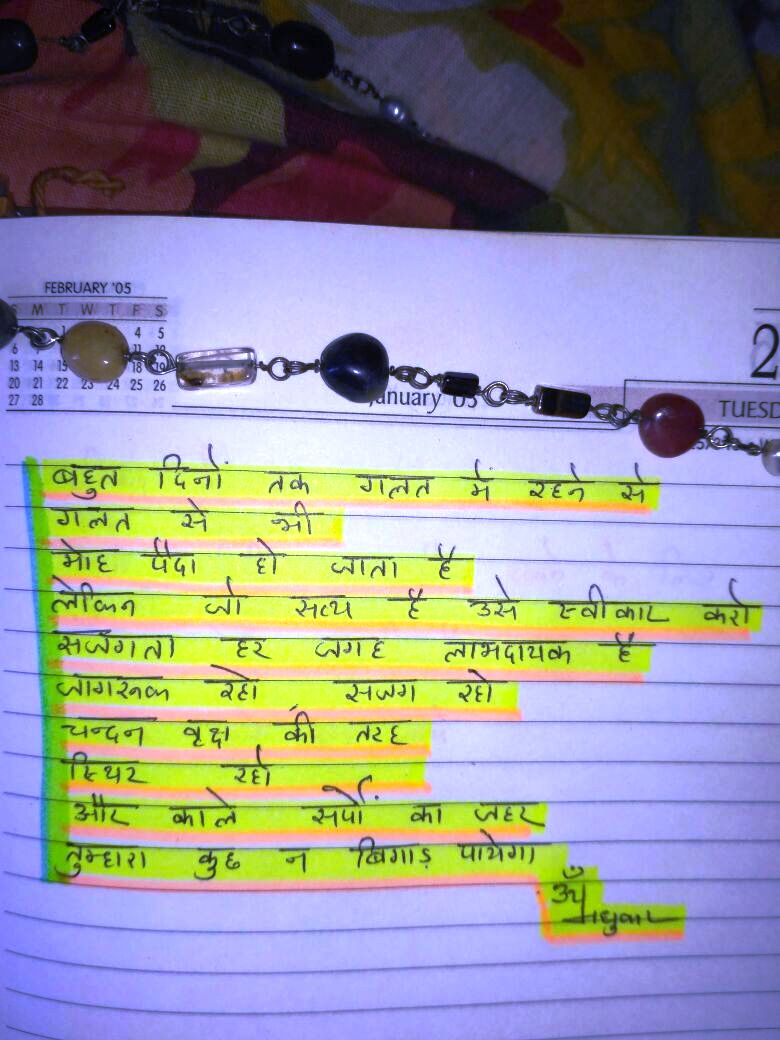 FEBRUARY '05
M T W T F S
4 5
6
13 14 15 18 19
20 21 22 23 24 25 26
27 28
January 05
2
TUESD
बहुत दिनों तक गलत में रहने से
गलत से भी
मोह पैदा हो जाता है
लेकिन जो सत्य है उसे स्वीकार करो
सजगता हर जगह लाभदायक है
जागरूक रहो, सजग रहो
चन्दन वृक्ष की तरह
स्थिर रहो
और काले सर्पों का जहर
तुम्हारा कुछ न बिगाड़ पायेगा
मधुकर